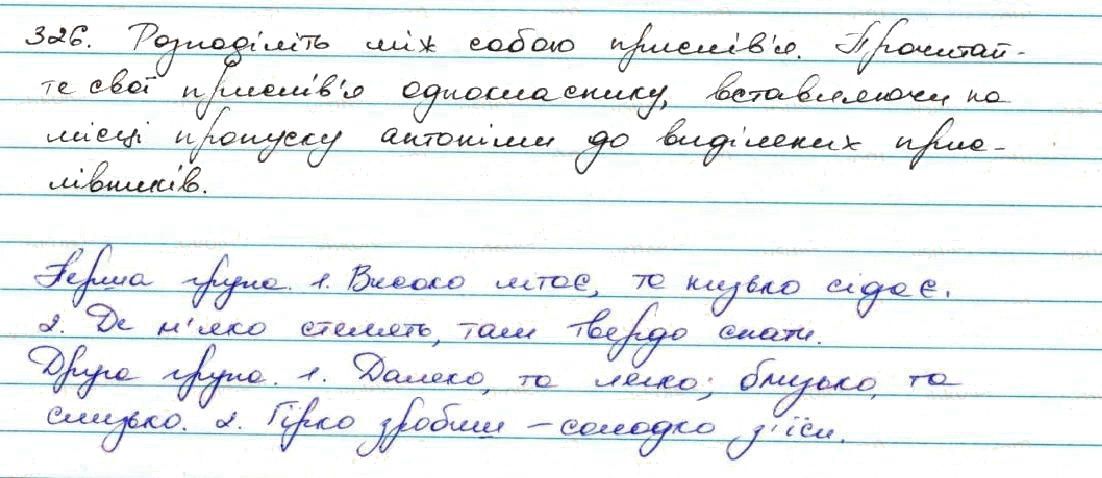 326. Розподіліть між собою прислів'я. Прочитай-
те свої прислів'я однокласнику, вставляючи на
місці пропуску антоніми до виділених прис-
лівників.
Перша група. 1. Високо літає, та низько сідає.
2. Де м'яко стелять, там твердо спати.
Друга група. 1. Далеко, та легко; близько, та
слизько. 2. Гірко зробиш – солодко з'їси.